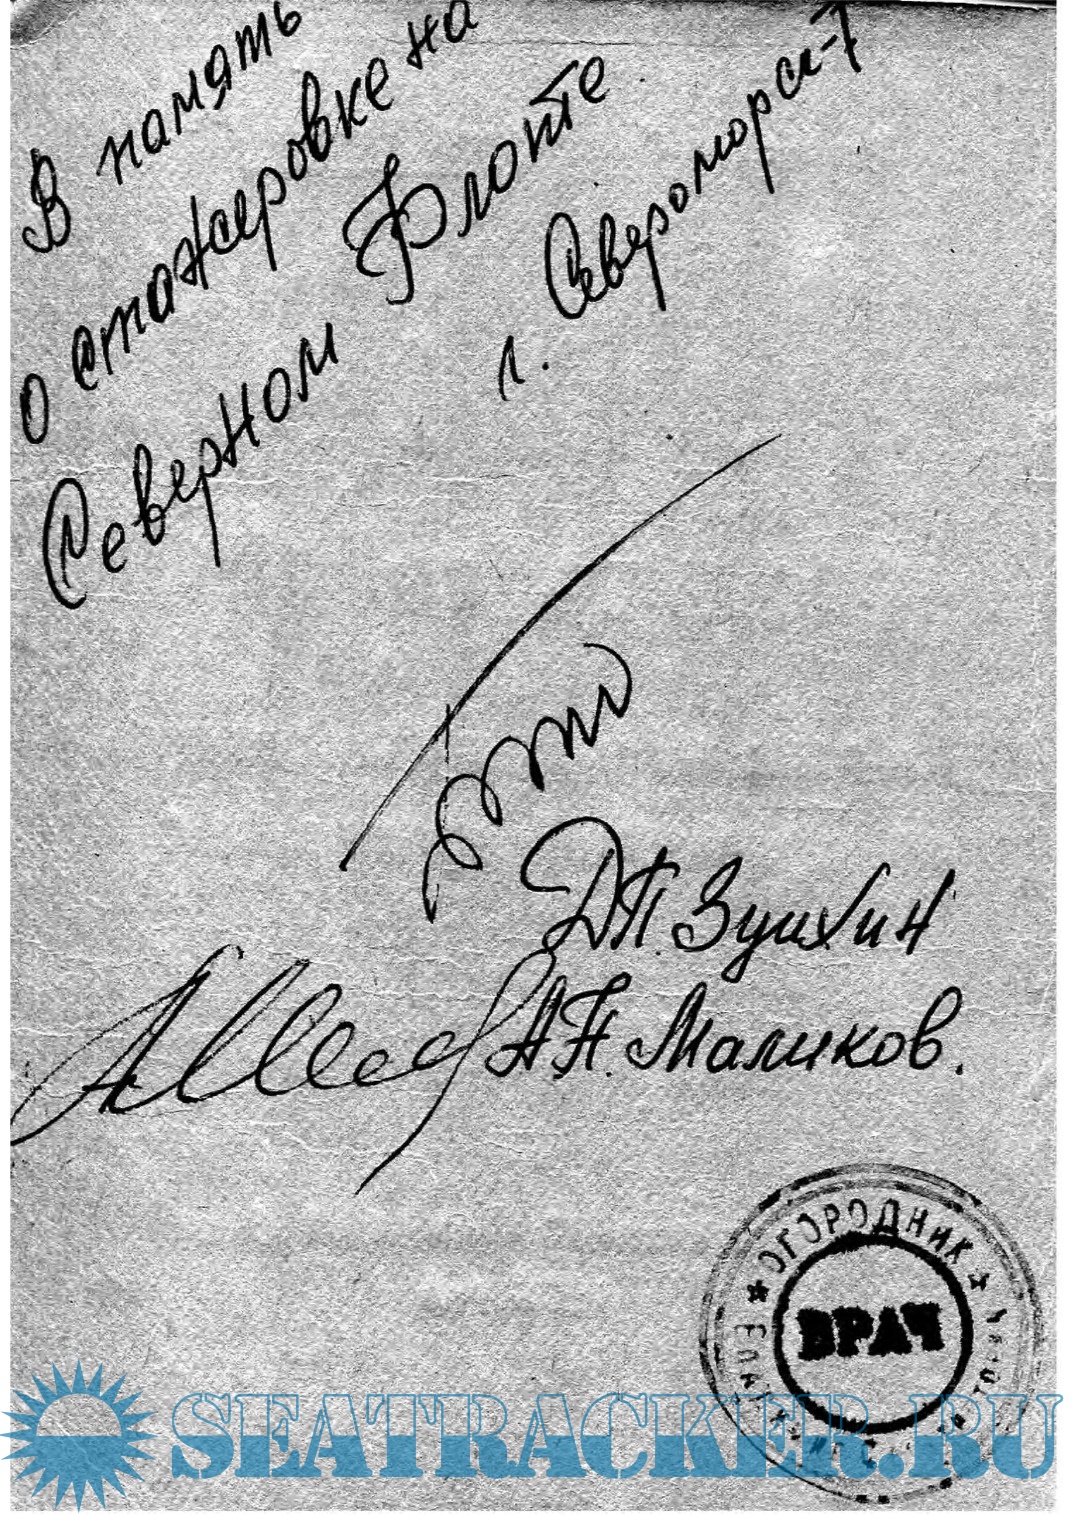 В память
о стажеровке на
Северном Флоте
г. Североморск-1
Д.П. Зушхин
А.П. Маликов.
ОГОРОДНИК
ВРАЧ
SEATRACKER.RU